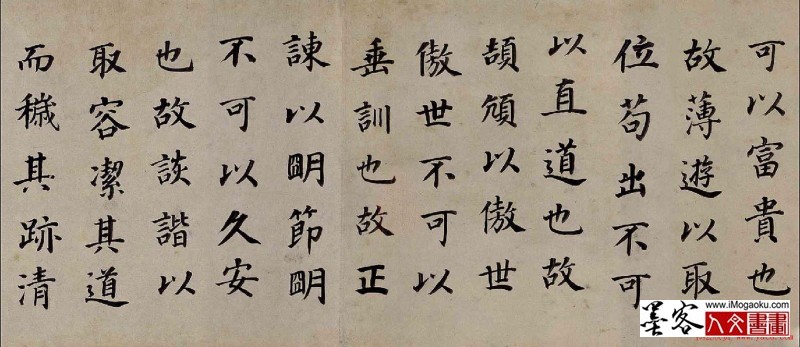 可以富貴也
故薄遊以取
位苟出不可
以直道也故
頡頏以傲世
傲世不可以
垂訓也故正
諫以明節明
不可以久安
也故詼諧以
取容潔其道
而穢其跡清
墨客
www.iMogaoku.com
人文書畫